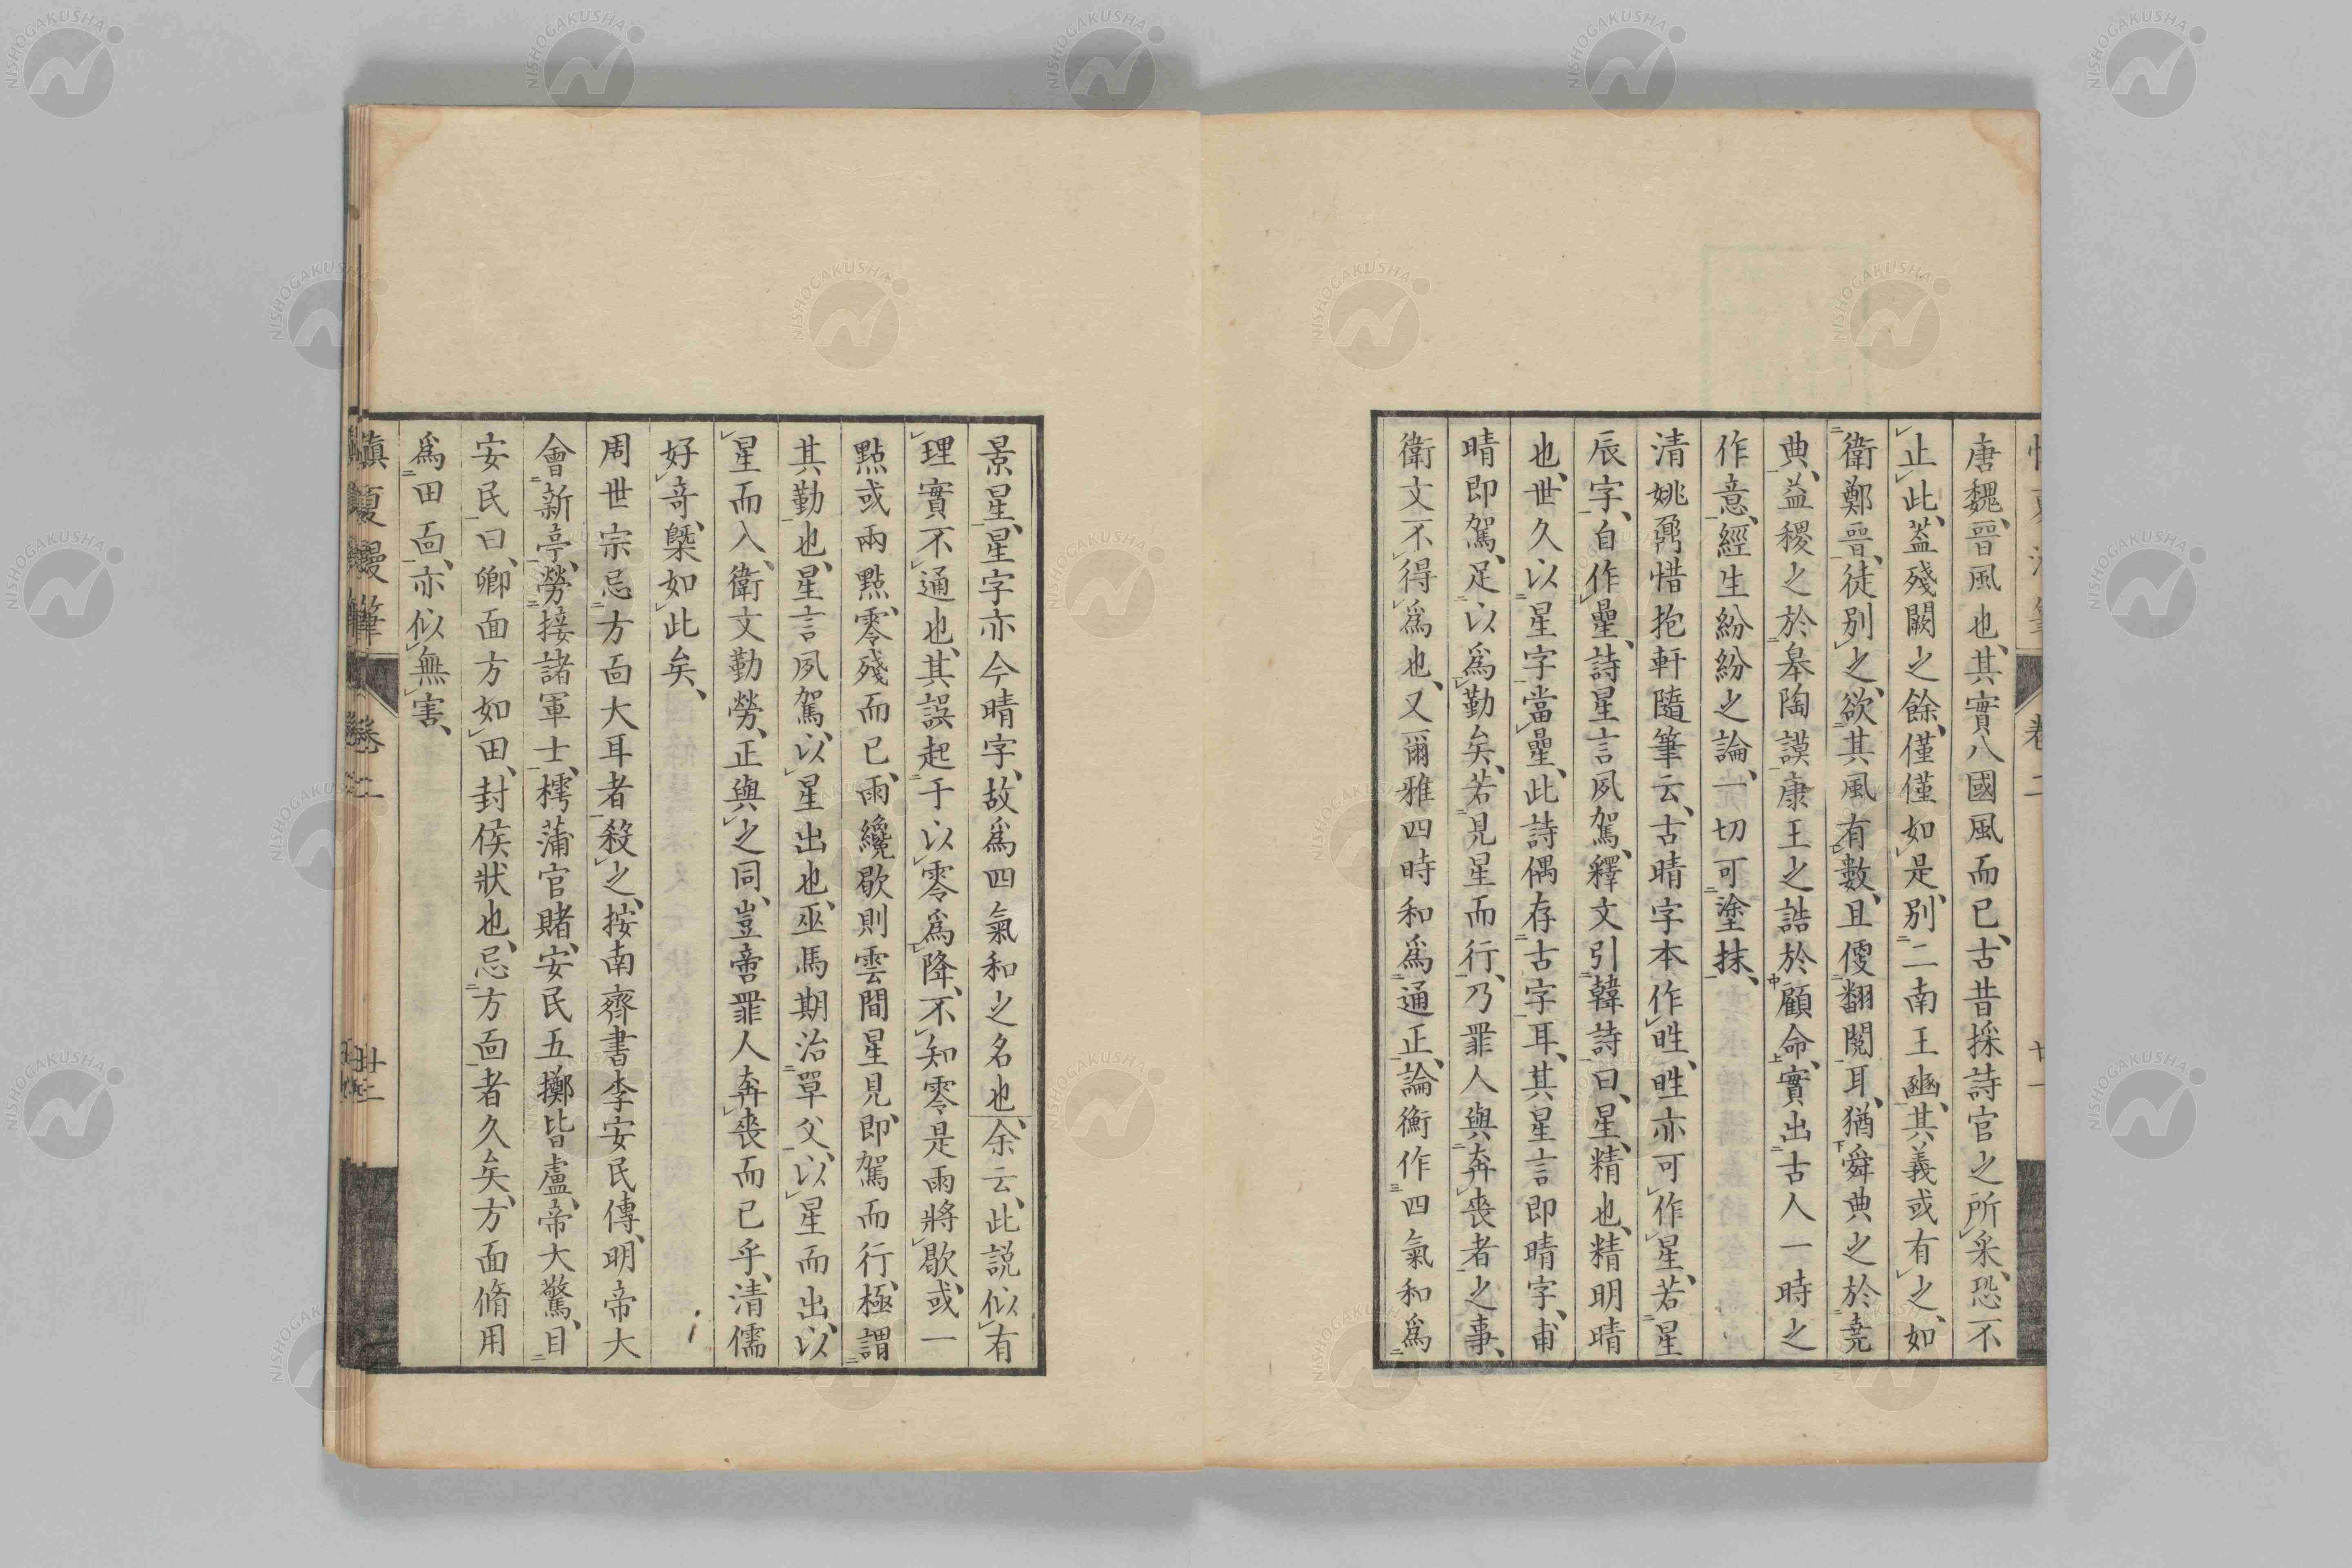 唐魏、晉風也、其實八國風而已、古昔採詩官之所采、恐不
止此、蓋殘闕之餘、僅僅如是、別二南王豳、其義或有之、如
衛鄭晉、徒別之、欲其風有數、且便翻閲耳、猶舜典之於堯
典、益稷之於皋陶謨康王之誥於顧命、實出古人一時之
作意、經生紛紛之論、一切可塗抹、
清姚鼐惜抱軒隨筆云、古晴字本作甠、甠亦可作星、若星
辰字、自作曐、詩星言夙駕、釋文引韓詩曰、星、精也、精明晴
也、世久以星字當曐、此詩偶存古字耳、其星言即晴字、甫
晴即駕、足以爲勤矣、若見星而行、乃罪人與奔喪者之事、
衛文不得爲也、又爾雅四時和爲通正、論衡作四氣和爲
景星、星字亦今晴字、故爲四氣和之名也、余云、此説似有
理實不通也、其誤起于以零爲降、不知零是雨將歇、或一
點或兩點、零殘而已、雨纔歇則雲間星見、即駕而行、極謂
其勤也、星言夙駕、以星出也、巫馬期治單父、以星而出、以
星而入、衛文勤勞、正與之同、豈啻罪人奔喪而已乎、清儒
好奇、槩如此矣、
周世宗忌方面大耳者殺之、按南齊書李安民傳、明帝大
會新亭、勞接諸軍士、樗蒲官賭、安民五擲皆盧、帝大驚、目
安民曰、卿面方如田、封侯狀也、忌方面者久矣、方面脩用
爲田面、亦似無害、
慎夏漫筆 卷二